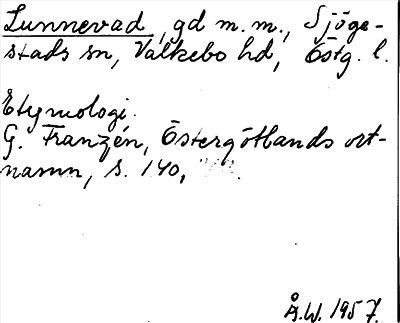 Lunnevad, gd m.m., Sjöge-
stads sn, Valkebo hd, Östg. l.
Etymologi.
G. Franzén, Östergötlands ort-
namn, s. 140,
Å.W. 1957.